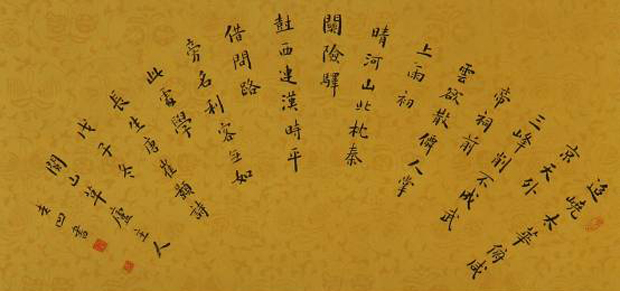 迢嶢太華俯咸
京天外
三峰削不成武
帝祠前
雲欲散僊人掌
上雨初
晴河山北枕秦
關險驛
西連漢時平
借問路
旁名利客無如
此處學
長生唐崔顥詩
戊子冬
閩山草廬主人
書